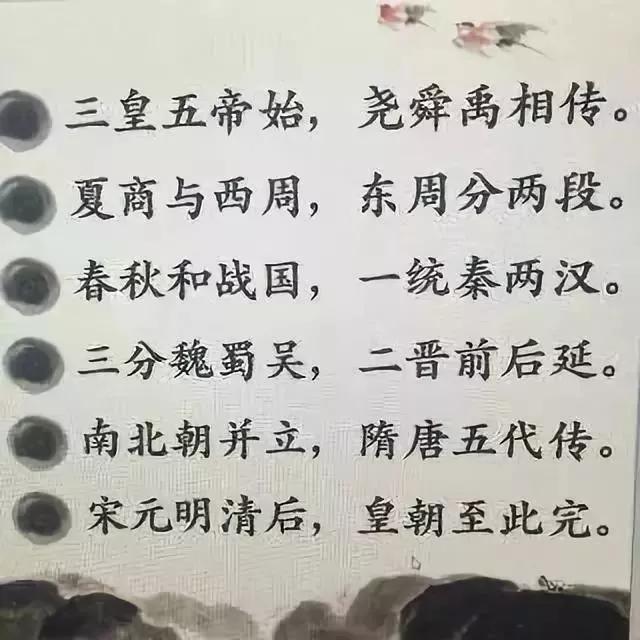 三皇五帝始，尧舜禹相传。
夏商与西周，东周分两段。
春秋和战国，一统秦两汉。
三分魏蜀吴，二晋前后延。
南北朝并立，隋唐五代传。
宋元明清后，皇朝至此完。